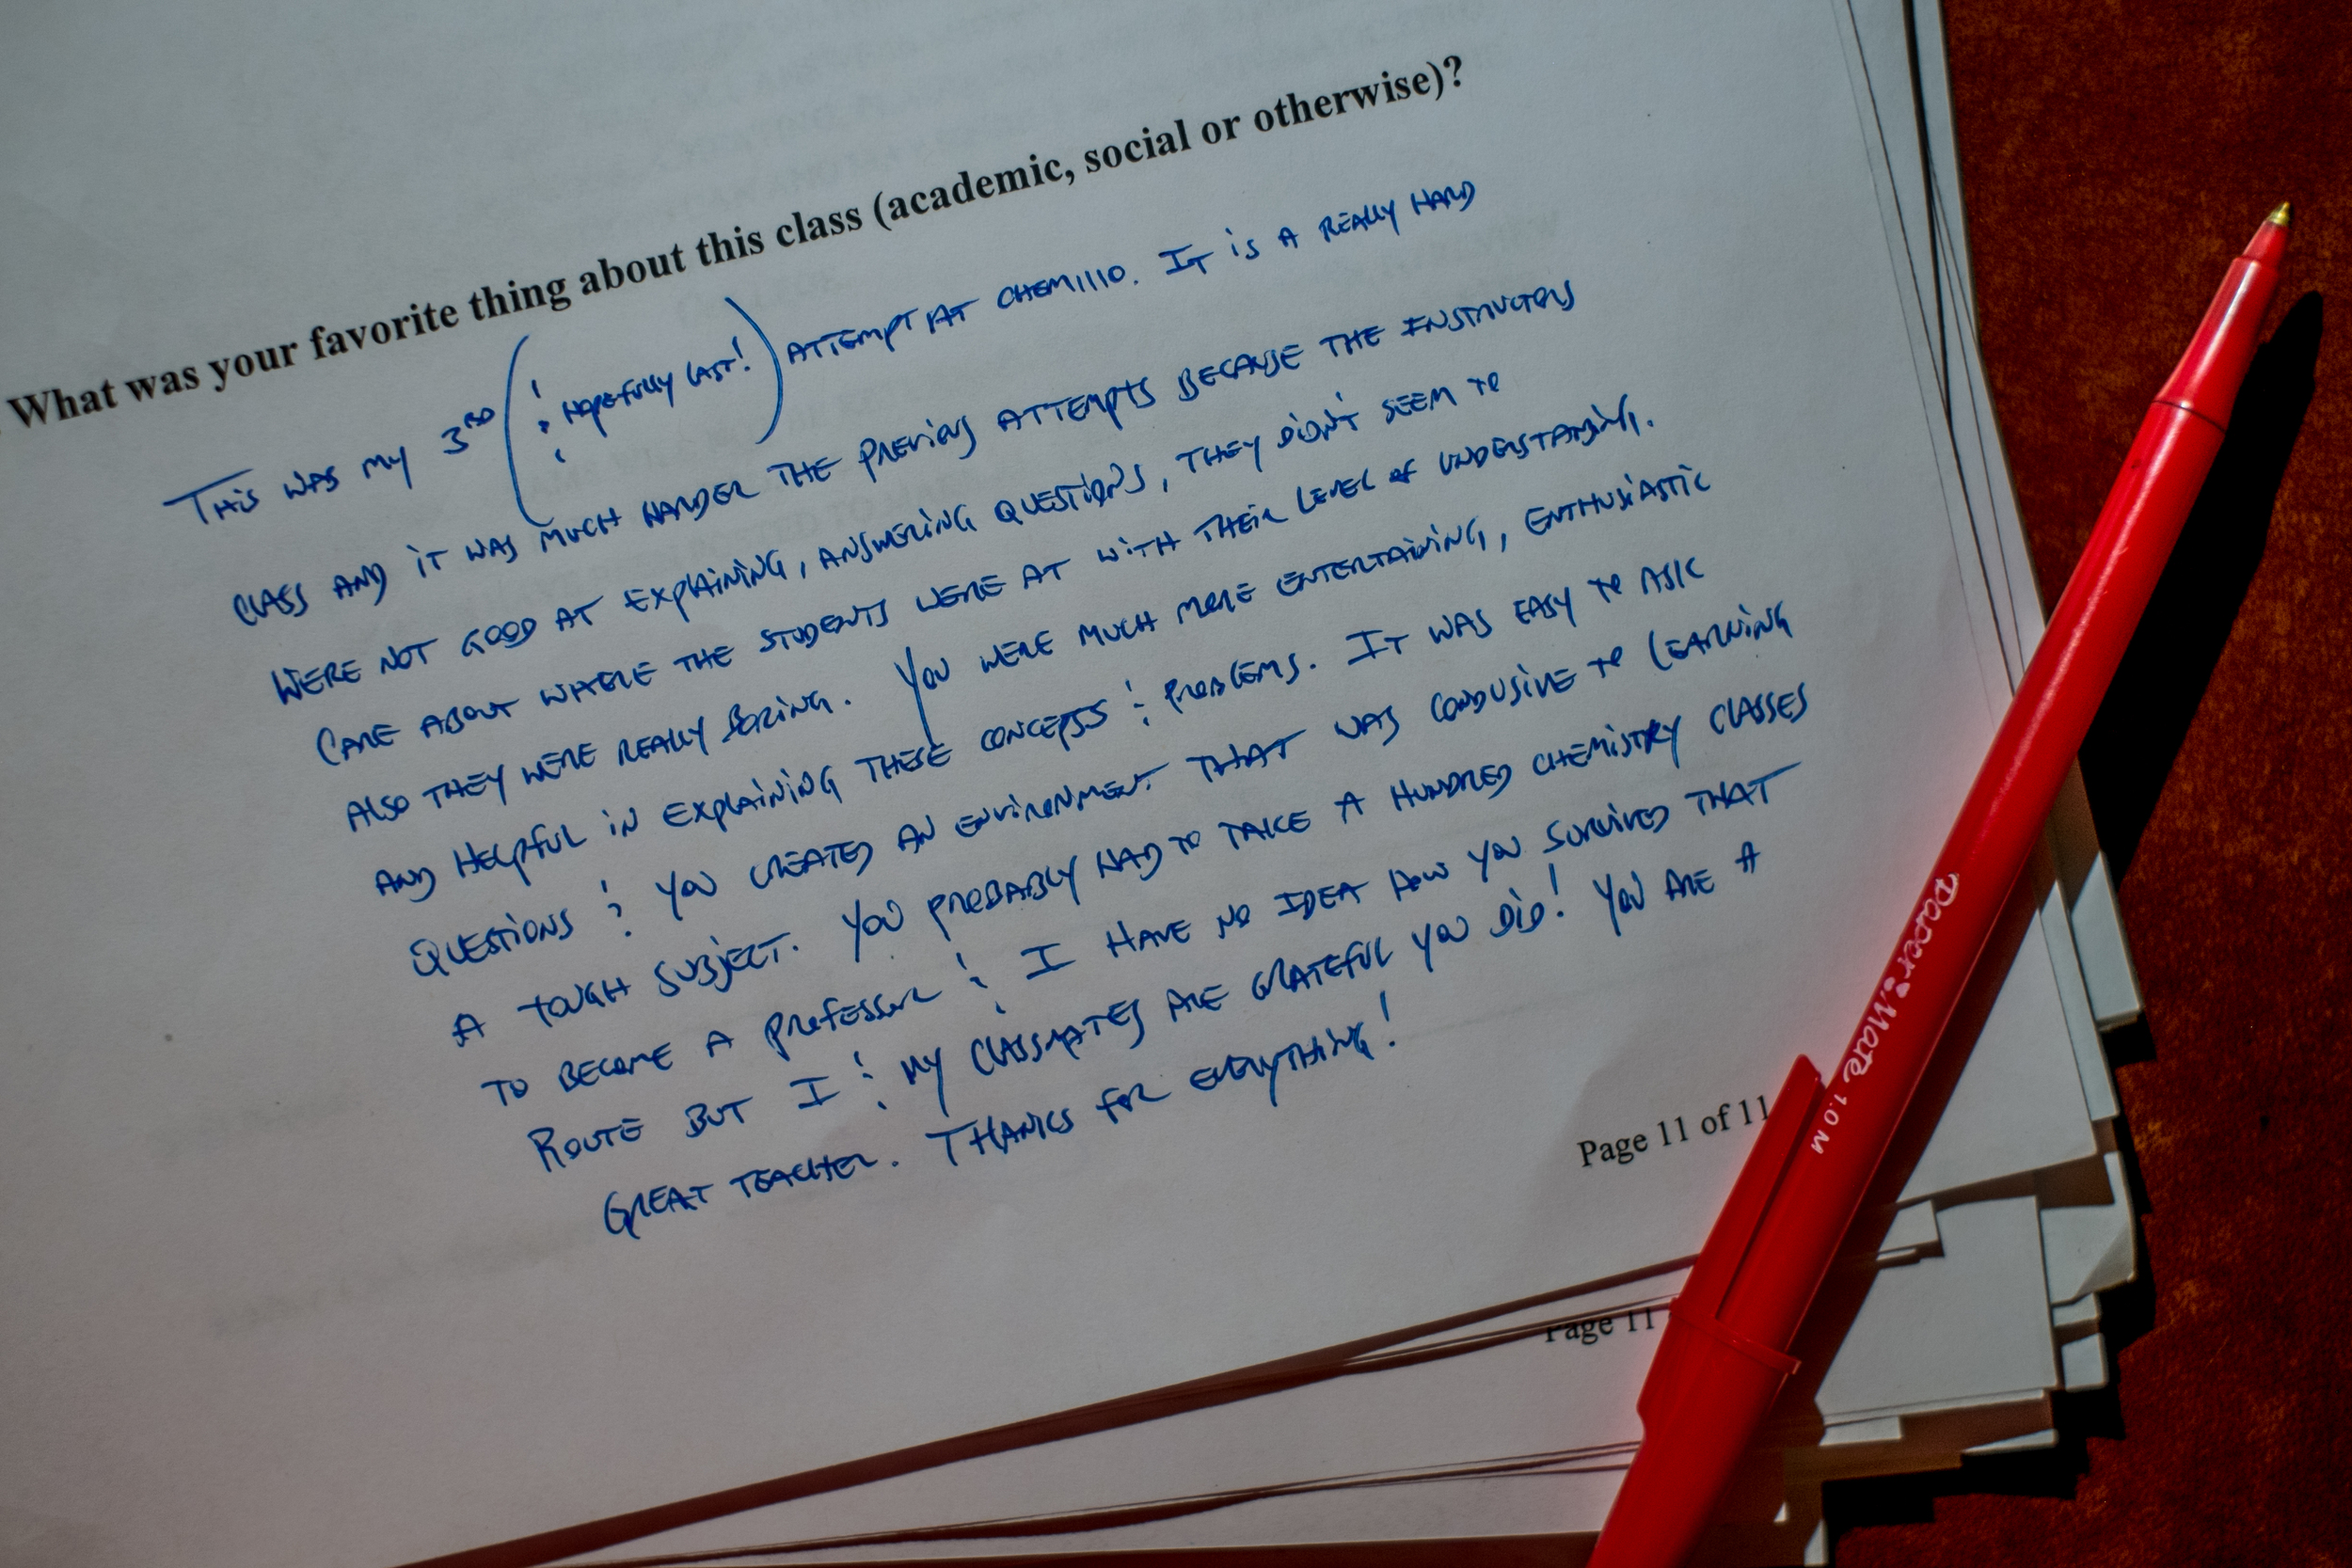 What was your favorite thing about this class (academic, social or otherwise)?
THIS WAS MY 3RD (& HOPEFULLY LAST!) ATTEMPT AT CHEM1110. IT IS A REALLY HARD
CLASS AND IT WAS MUCH HARDER THE PREVIOUS ATTEMPTS BECAUSE THE INSTRUCTORS
WERE NOT GOOD AT EXPLAINING, ANSWERING QUESTIONS, THEY DIDN'T SEEM TO
CARE ABOUT WHERE THE STUDENTS WERE AT WITH THEIR LEVEL OF UNDERSTANDING.
ALSO THEY WERE REALLY BORING. YOU WERE MUCH MORE ENTERTAINING, ENTHUSIASTIC
AND HELPFUL IN EXPLAINING THESE CONCEPTS & PROBLEMS. IT WAS EASY TO ASK
QUESTIONS & YOU CREATED AN ENVIRONMENT THAT WAS CONDUSIVE TO LEARNING
A TOUGH SUBJECT. YOU PROBABLY HAD TO TAKE A HUNDRED CHEMISTRY CLASSES
TO BECOME A PROFESSOR & I HAVE NO IDEA HOW YOU SURVIVED THAT
ROUTE BUT I & MY CLASSMATES ARE GRATEFUL YOU DID! YOU ARE A
GREAT TEACHER. THANKS FOR EVERYTHING!
Page 11 of 11
Page 11
Paper:Mate 1.0 M